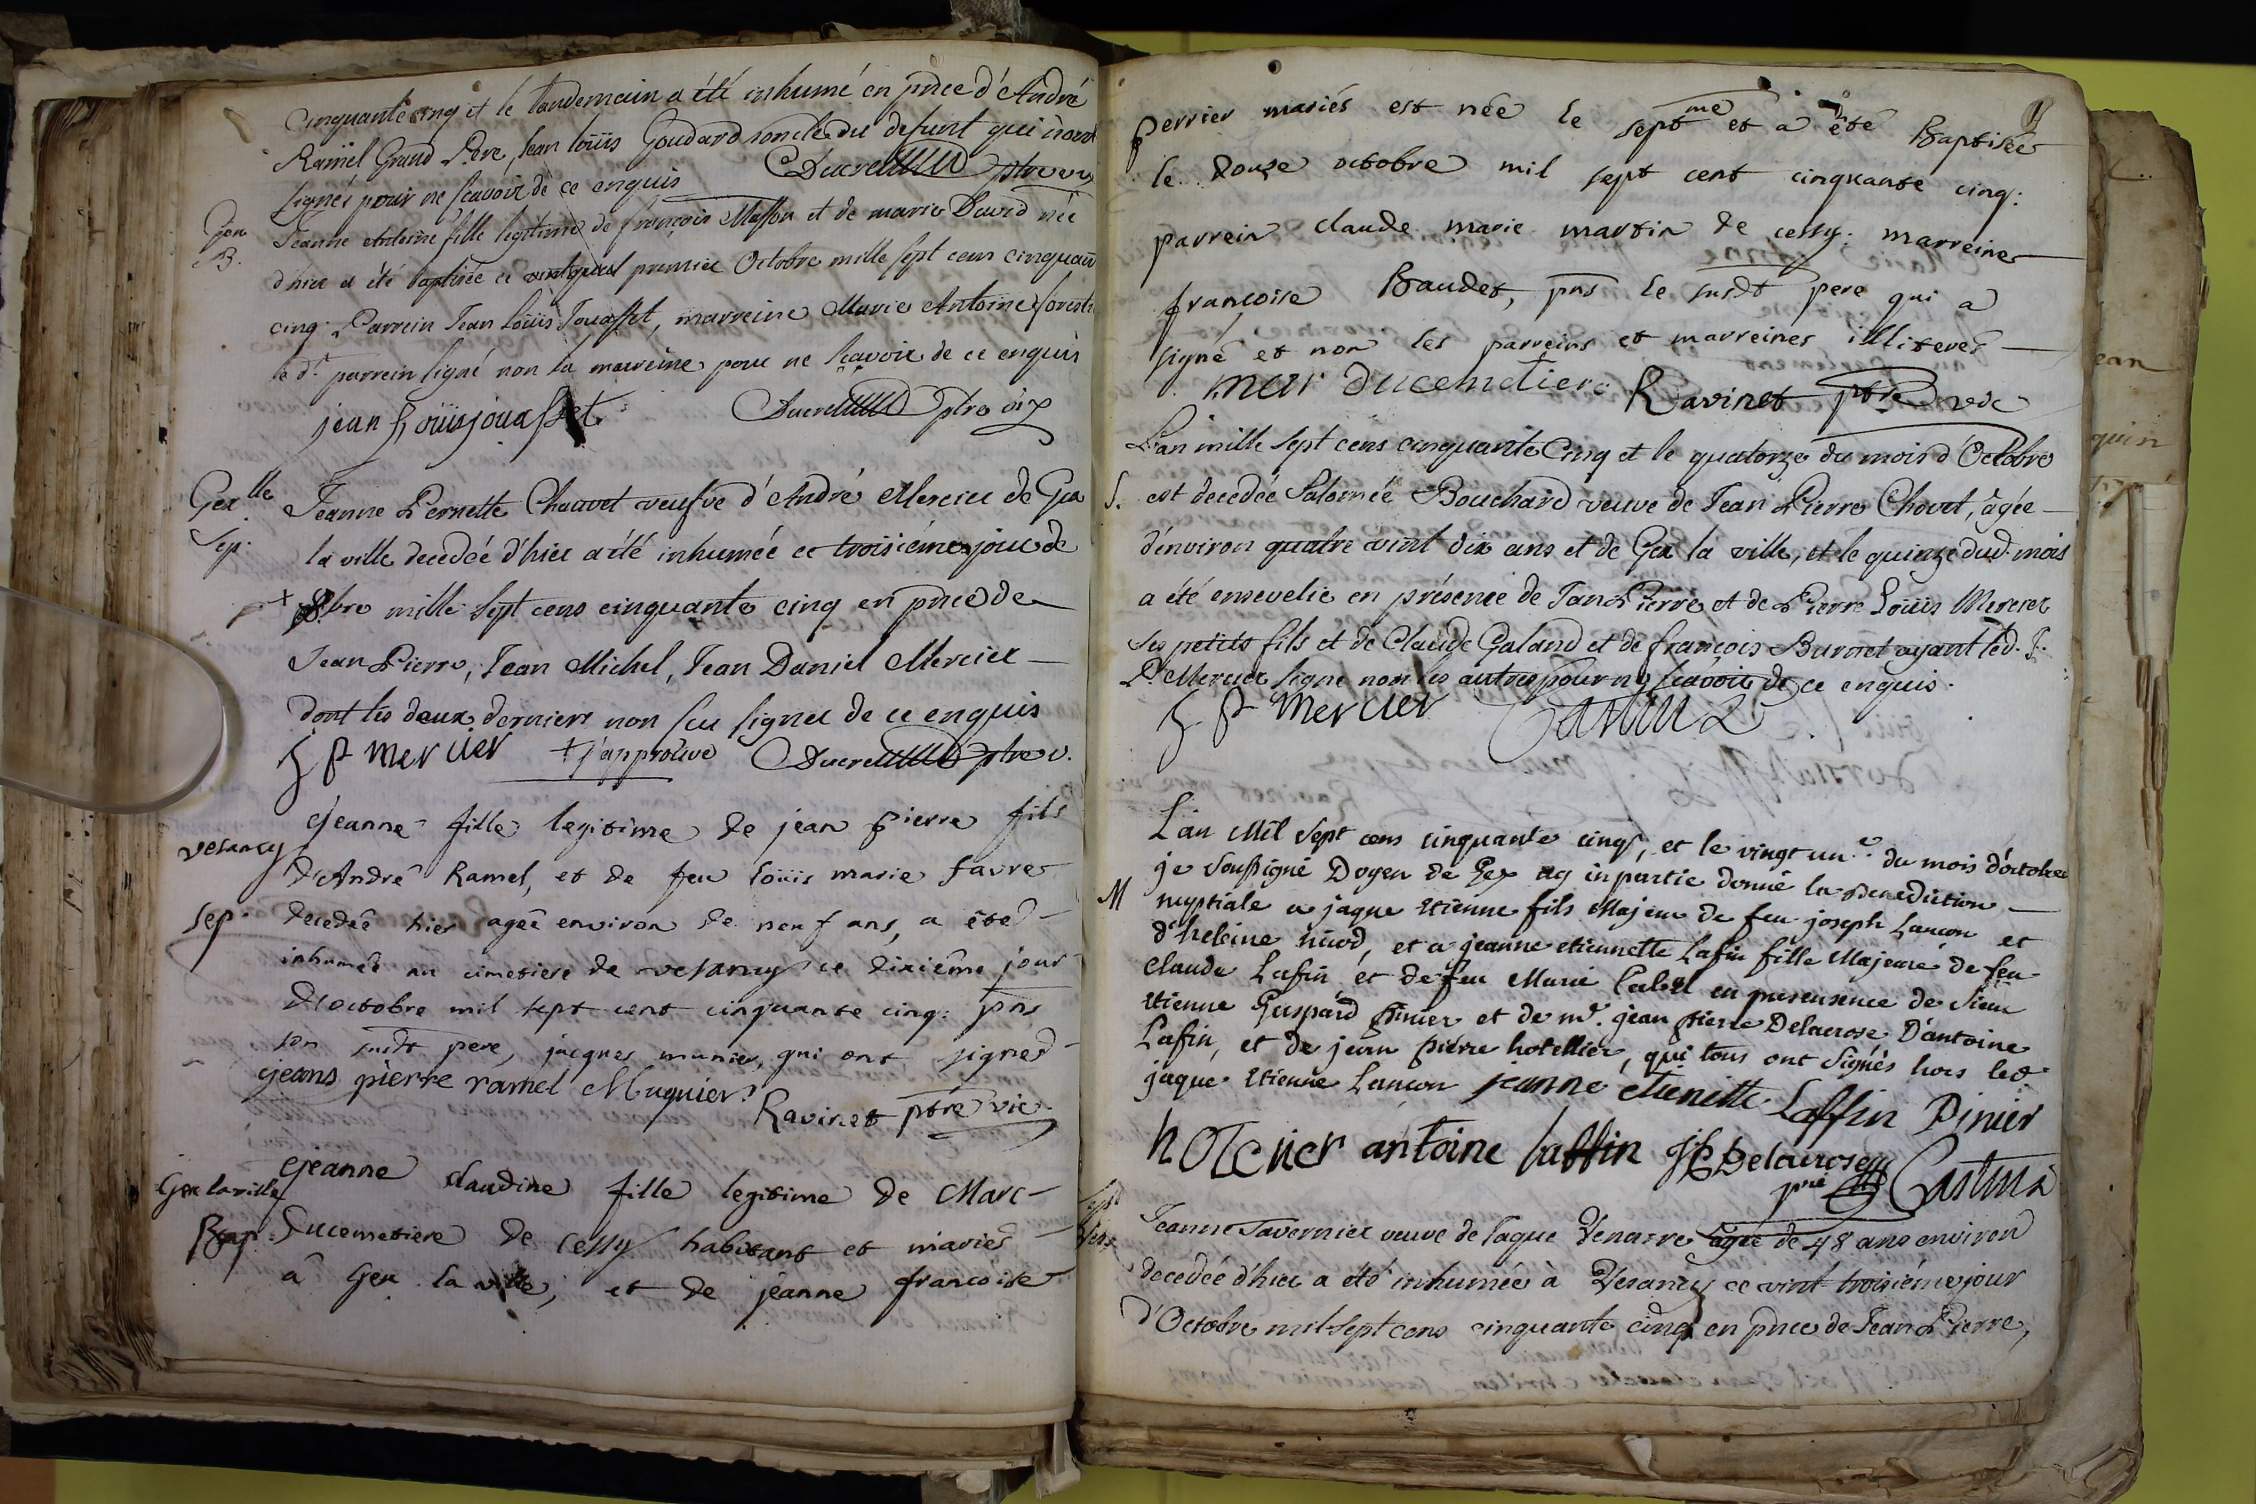 cinquante cinq et le landemain a été inhumé en pnce d'André
Ramel Grand Pere, Jean loüis Goudard oncle du defunt qui n'ont
signés pour ne scavoir de ce enquis Ducret ptre vic
Gex
B.
Jeanne Antoine fille legitime de françois Masson et de marie David née
d'hier a été baptisée ce premier Octobre mille sept cens cinquante
cinq. Parrein Jean Loüis Jouasset, marreine Marie Antoine
le d.t parrein signé non la marreine pour ne scavoir de ce enquis
jean Loüis jouasset Ducret ptre vix
Gex lle
Sep.
Jeanne Pernette Chauvet veufve d'André Mercier de Gex
la ville decedée d'hier a été inhumée ce troisiéme jour de
+ 8bre mille sept cens cinquante cinq en pnce de
Jean Pierre, Jean Michel, Jean Daniel Mercier
dont les deux derniers non scu signer de ce enquis
J P Mercier + j'approuve Ducret ptre v.
vesancy
sep.
jeanne fille legitime de jean pierre fils
d'André Ramel, et de feu loüis marie favre
decedée hier agée environ de neuf ans, a été
inhumée au cimetiere de vesancy ce dixiême jour
d'octobre mil sept cent cinquante cinq: pns
son susdt pere, jacques munier, qui ont signed
jeans pierre ramel Muguier
Ravinet ptre vic
Gex la ville
Bap.
jeanne claudine fille legitime de Marc
Ducemetiere de cessy habitant et mariés
â Gex la ville, et de jeanne francoise
perrier mariés est née le septme et a été Baptisée
le douze octobre mil sept cent cinquante cinq:
parrein claude marie martin de cessy: marreine
françoise Baudet, pns le susdt pere qui a
signé et non les parreins et marreines illiterés
mar ducemetiere Ravinet ptre vic
S.
L'an mille sept cens cinquante Cinq et le quatorze du mois d'Octobre
est decedée Salomée Bouchard veuve de Jean Pierre Chovet, âgée
d'environ quatre vint dix ans et de Gex la ville, et le quinze dud. mois
a été ensevelie en présence de Jean Pierre et de Pierre Loüis Mercier
ses petits fils et de Claude Galand et de françois Burnet ayant led. J.
P. Mercier signé non les autres pour ne scavoir de ce enquis.
J P Mercier Castin
M
L'an Mil Sept cens cinquante cinq, et le vingt un.e du mois d'octobre
je soussigné Doyen de Gex ay inpartie donné la Benediction
nuptiale a jaque etienne fils Majeur de feu joseph Lançon et
d'heleine nicod, et a jeanne etiennette Lafin fille Majeure de feu
claude Lafin, et de feu Marie en presensence de Sieur
etienne Guspard Pinier et de mr. jean pierre Delacrose, D'antoine
Lafin, et de jean pierre hotellier, qui tous ont signés hors led.
jaque etienne Lançon jeanne etienette Laffin Pinier
hotelier antoine laffin JP Delacrose
Castin
Sep
Jeanne Tavernier veuve de Jaque Venarre agée de 48 ans environ
decedée d'hier a été inhumée à Vesancy ce vint troisiéme jour
d'Octobre mil sept cens cinquante cinq en pnce de Jean Pierre,